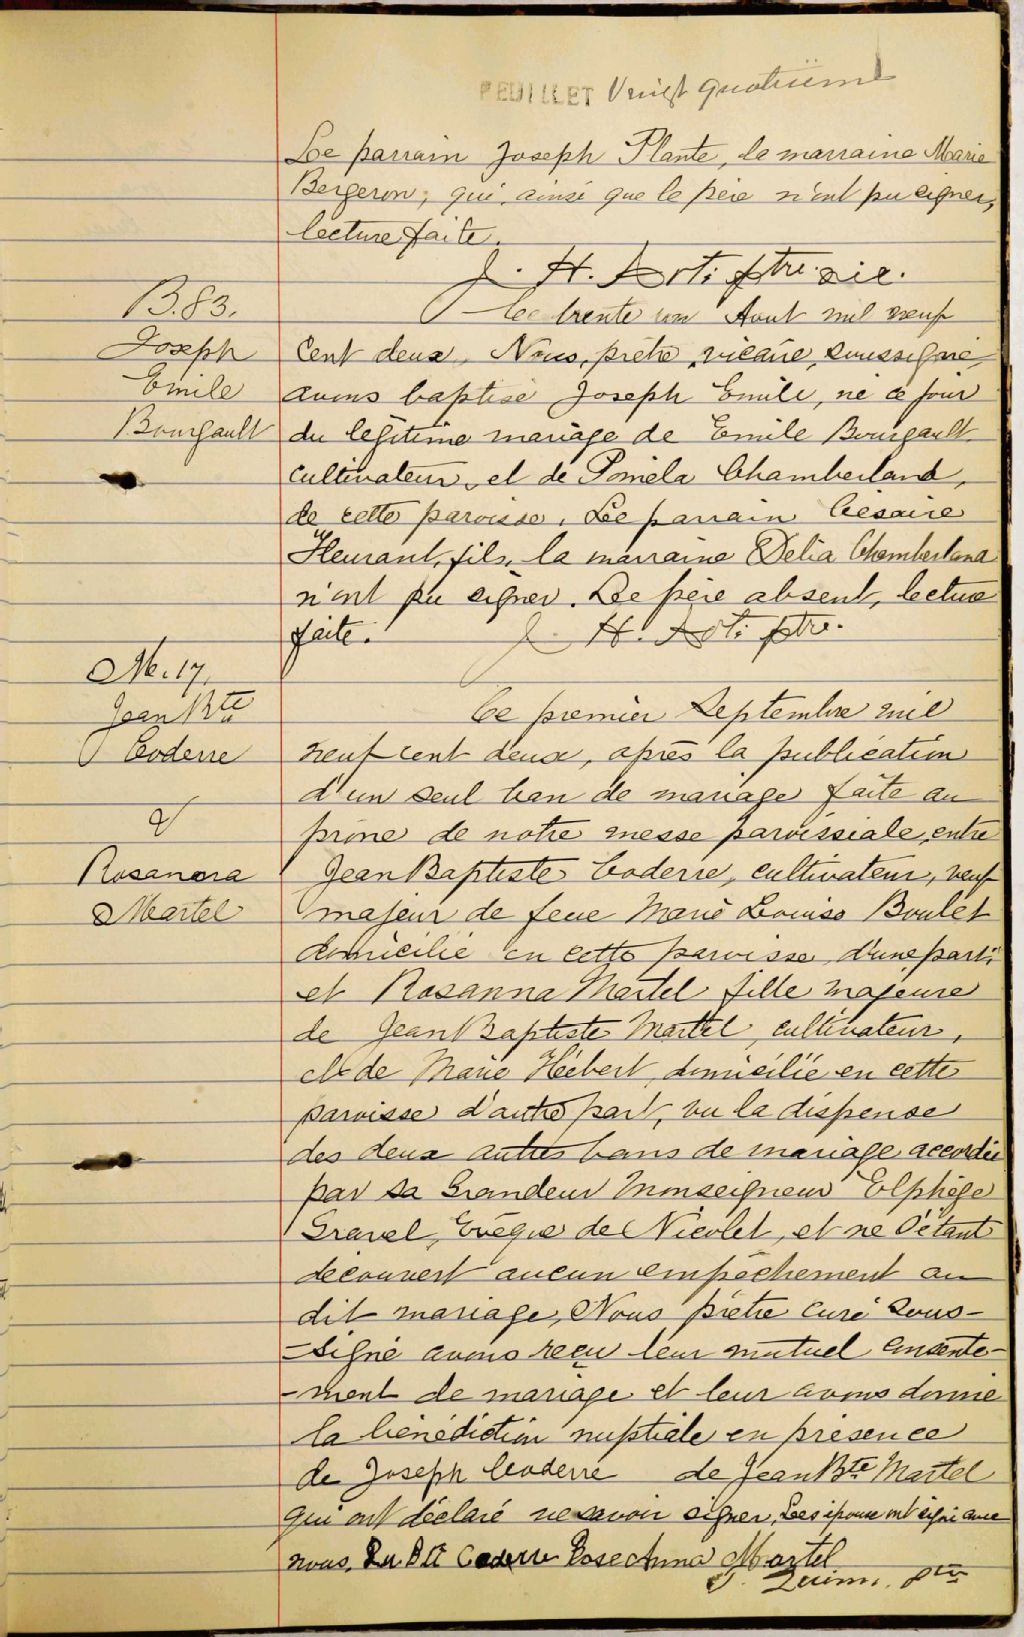 FEUILLET Vingt quatrième
Le parrain Joseph Plante, la marraine Marie
Bergeron, qui, ainsi que le père n'ont pu signer,
lecture faite.
J. H. ptre. vic.
B.83.
Joseph
Emile
Bourgault
Le trente un Aout mil neuf
cent deux, Nous, prêtre, vicaire, soussigné,
avons baptisé Joseph Emile, né ce jour
du légitime mariage de Emile Bourgault
cultivateur, et de Poméla Chamberland,
de cette paroisse. Le parrain Césaire
Fleurant, fils, la marraine Delia Chamberland
n'ont pu signer. Le père absent, lecture
faite. J. H. ptr.
M. 17,
Jean Bte
Coderre
&
Rosanna
Martel
Ce premier Septembre mil
neuf cent deux, après la publication
d'un seul ban de mariage faite au
prône de notre messe paroissiale, entre
Jean Baptiste Coderre, cultivateur, veuf
majeur de feue Marie Louise Boulet
domicilié en cette paroisse, d'une part;
et Rosanna Martel fille majeure
de Jean Baptiste Martel, cultivateur,
et de Marie Hébert, domiciliée en cette
paroisse d'autre part, vu la dispense
des deux autres bans de mariage accordée
par sa Grandeur Monseigneur Elphège
Gravel, Evêque de Nicolet, et ne s'étant
découvert aucun empêchement au
dit mariage, Nous prêtre curé sous-
-signé avons reçu leur mutuel consente-
-ment de mariage et leur avons donné
la bénédiction nuptiale en présence
de Joseph Coderre de Jean Bte Martel
qui ont déclaré ne savoir signer, Les époux ont signé avec
nous. Bte Coderre Rose Anna Martel
Quinn. ptre